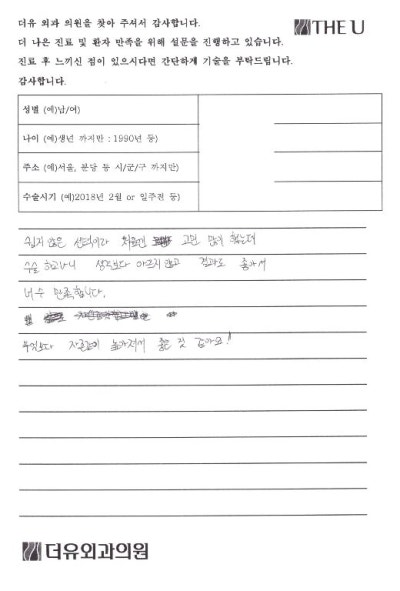 더유 외과 의원을 찾아 주셔서 감사합니다.
더 나은 진료 및 환자 만족을 위해 설문을 진행하고 있습니다.
진료 후 느끼신 점이 있으시다면 간단하게 기술을 부탁드립니다.
감사합니다.
THE U
성별 (예)남/여)
나이 (예)생년 까지만 : 1990년 등)
주소 (예)서울, 분당 등 시/군/구 까지만)
수술시기 (예)2018년 2월 or 일주전 등)
쉽지 않은 선택이라 처음엔 고민 많이 했는데
수술 하고나니 생각보다 아프지 않고 결과도 좋아서
너무 만족합니다.
무엇보다 자존감이 높아져서 좋은 것 같아요!
더유외과의원